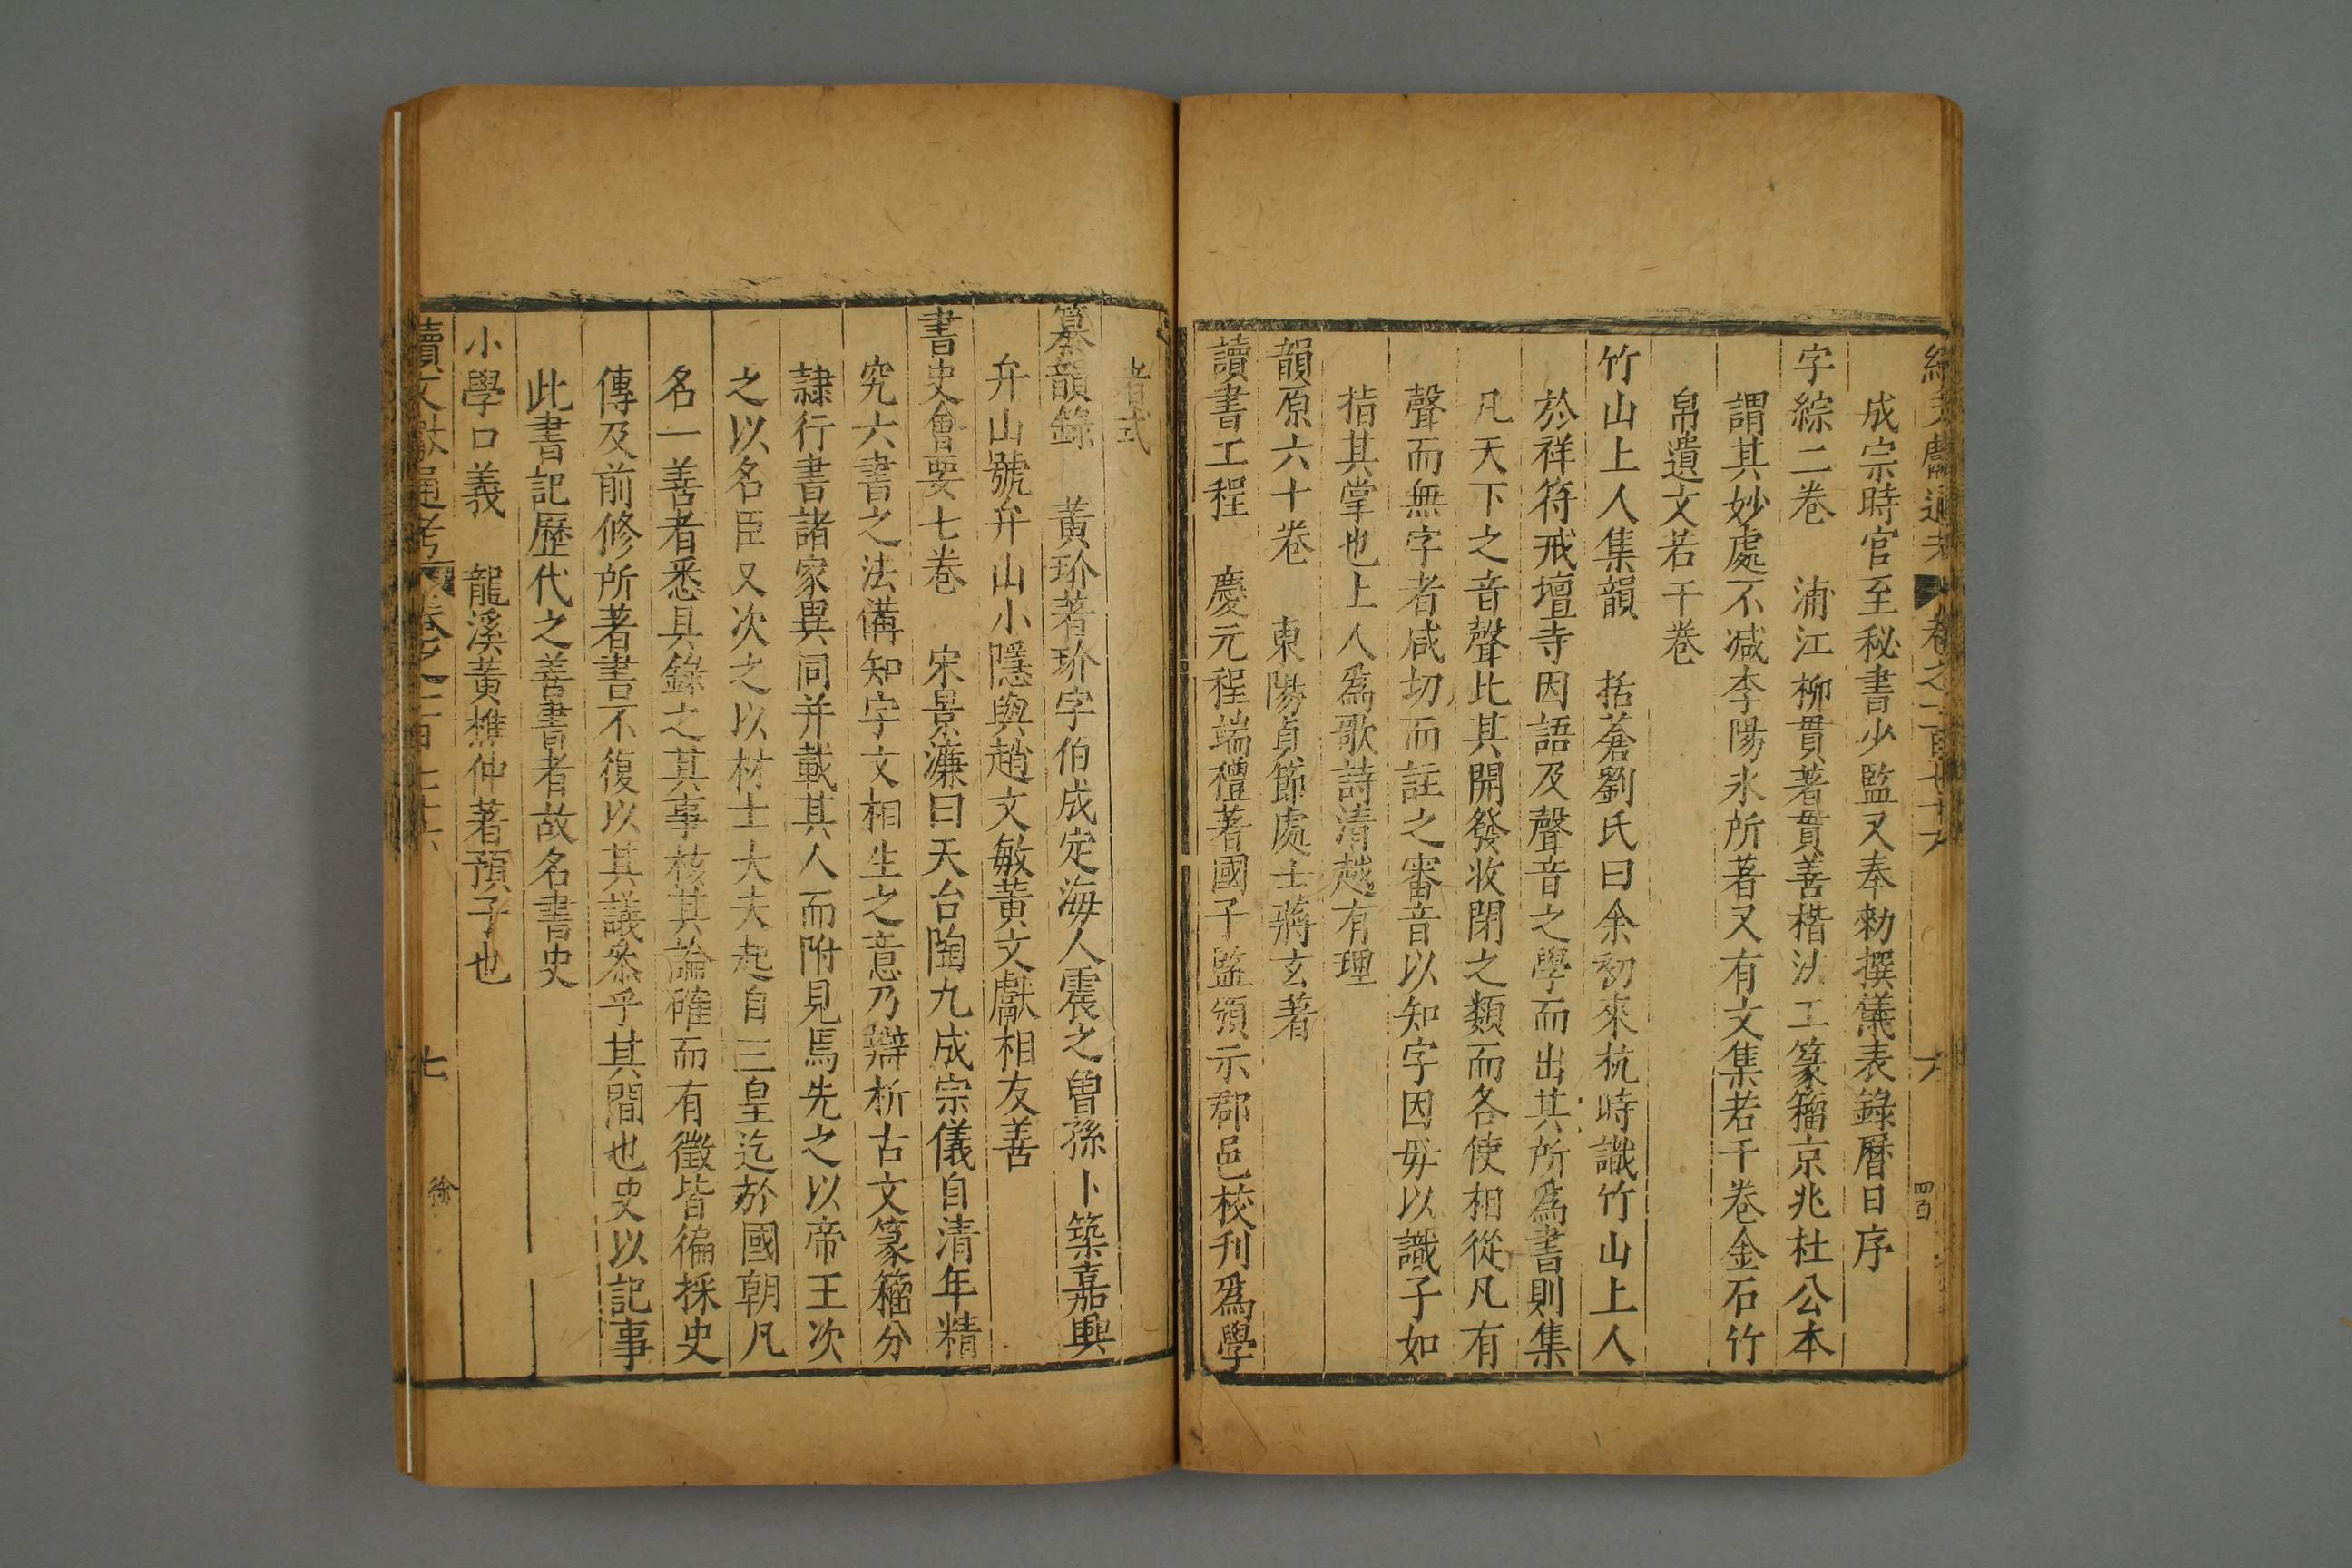 續文獻通考 卷之一百七十六 六 四百
成宗時官至秘書少監又奉勅撰儀表錄曆日序
字綜二卷 浦江柳貫著貫善楷法工篆籕京兆杜公本
謂其妙處不减李陽氷所著又有文集若干卷金石竹
帛遺文若干卷
竹山上人集韻 括蒼劉氏曰余初來杭時識竹山上人
於祥符戒壇寺因語及聲音之學而出其所爲書則集
凡天下之音聲比其開發收閉之類而各使相從凡有
聲而無字者咸切而註之審音以知字因毋以識子如
指其掌也上人爲歌詩清越有理
韻原六十卷 東陽貞節處士蔣玄著
讀書工程 慶元程端禮著國子監頒示郡邑校刊爲學
者式
纂韻錄 黃玠著玠字伯成定海人震之曽孫卜築嘉興
弁山號弁山小隱與趙文敏黃文獻相友善
書史會要七卷 宋景濂曰天台陶九成宗儀自清年精
究六書之法備知字文相生之意乃辯析古文篆籕分
隷行書諸家異同并載其人而附見焉先之以帝王次
之以名臣又次之以材士大夫起自三皇迄於國朝凡
名一善者悉具錄之其事核其論確而有徵皆徧採史
傳及前修所著書不復以其議叅乎其間也史以記事
此書記歷代之善書者故名書史
小學口義 龍溪黃樵仲著預子也
續文獻通考 卷之一百七十六 七 徐